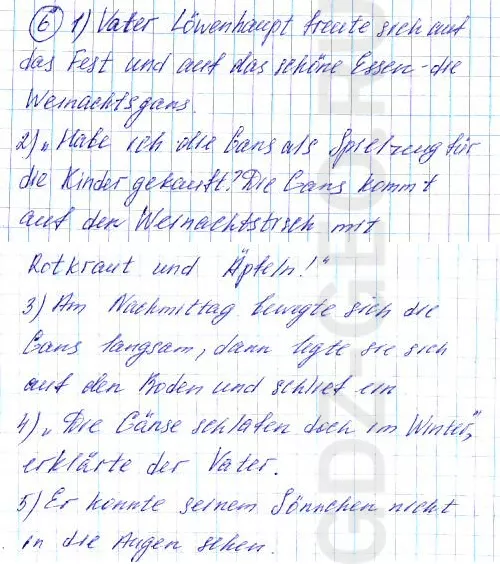 6 1) Vater Löwenhaupt freute sich auf
das Fest und auf das schöne Essen - die
Weinachtsgans.
2) „Habe ich die Gans als Spielzeug für
die Kinder gekauft? Die Gans kommt
auf den Weinachtstisch mit
Rotkraut und Äpfeln!"
3) Am Nachmittag bewegte sich die
Gans langsam, dann legte sie sich
auf den Boden und schlief ein
4) „Die Gänse schlafen doch im Winter",
erklärte der Vater.
5) Er konnte seinem Sönnchen nicht
in die Augen sehen.
GDZ-GEO.RU